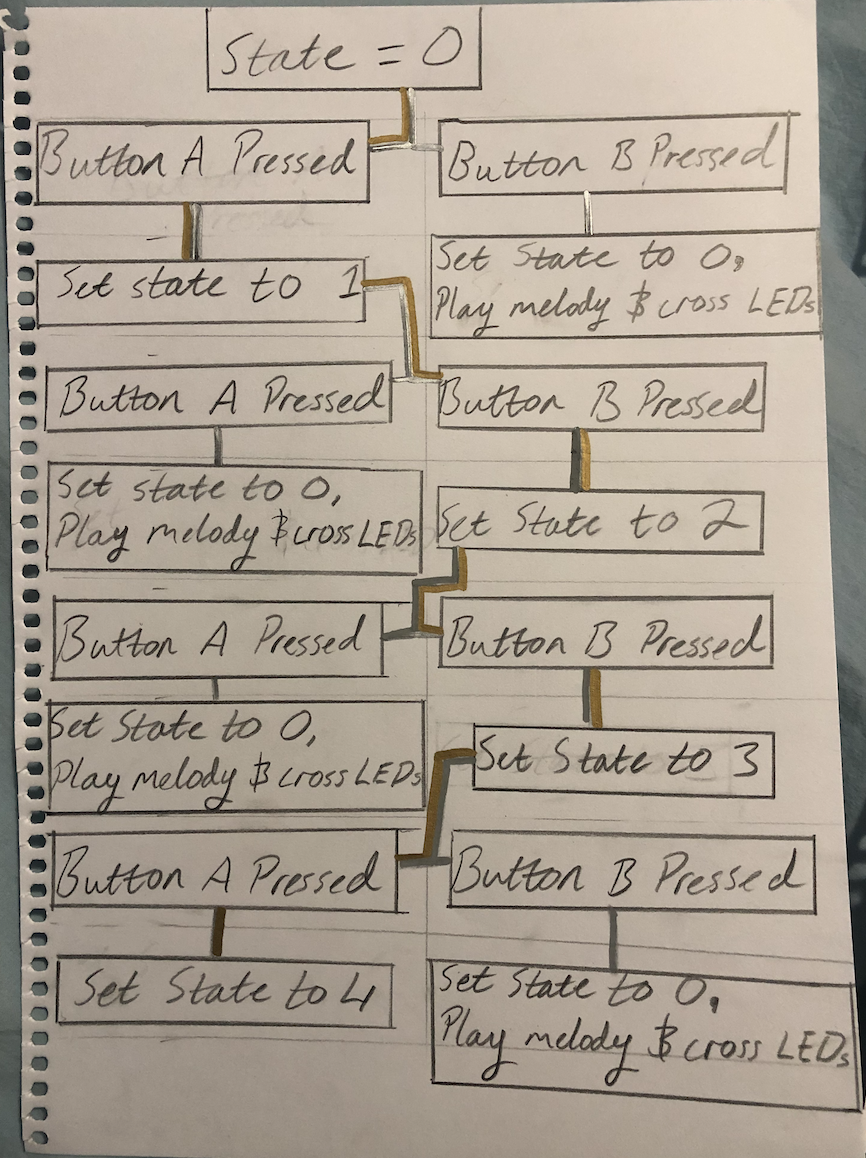 State = 0
Button A Pressed
Button B Pressed
Set state to 1
Set State to 0,
Play melody & cross LEDs
Button A Pressed
Button B Pressed
Set state to 0,
Play melody & cross LEDs
Set State to 2
Button A Pressed
Button B Pressed
Set State to 0,
Play melody & cross LEDs
Set State to 3
Button A Pressed
Button B Pressed
Set State to 4
Set State to 0,
Play melody & cross LEDs